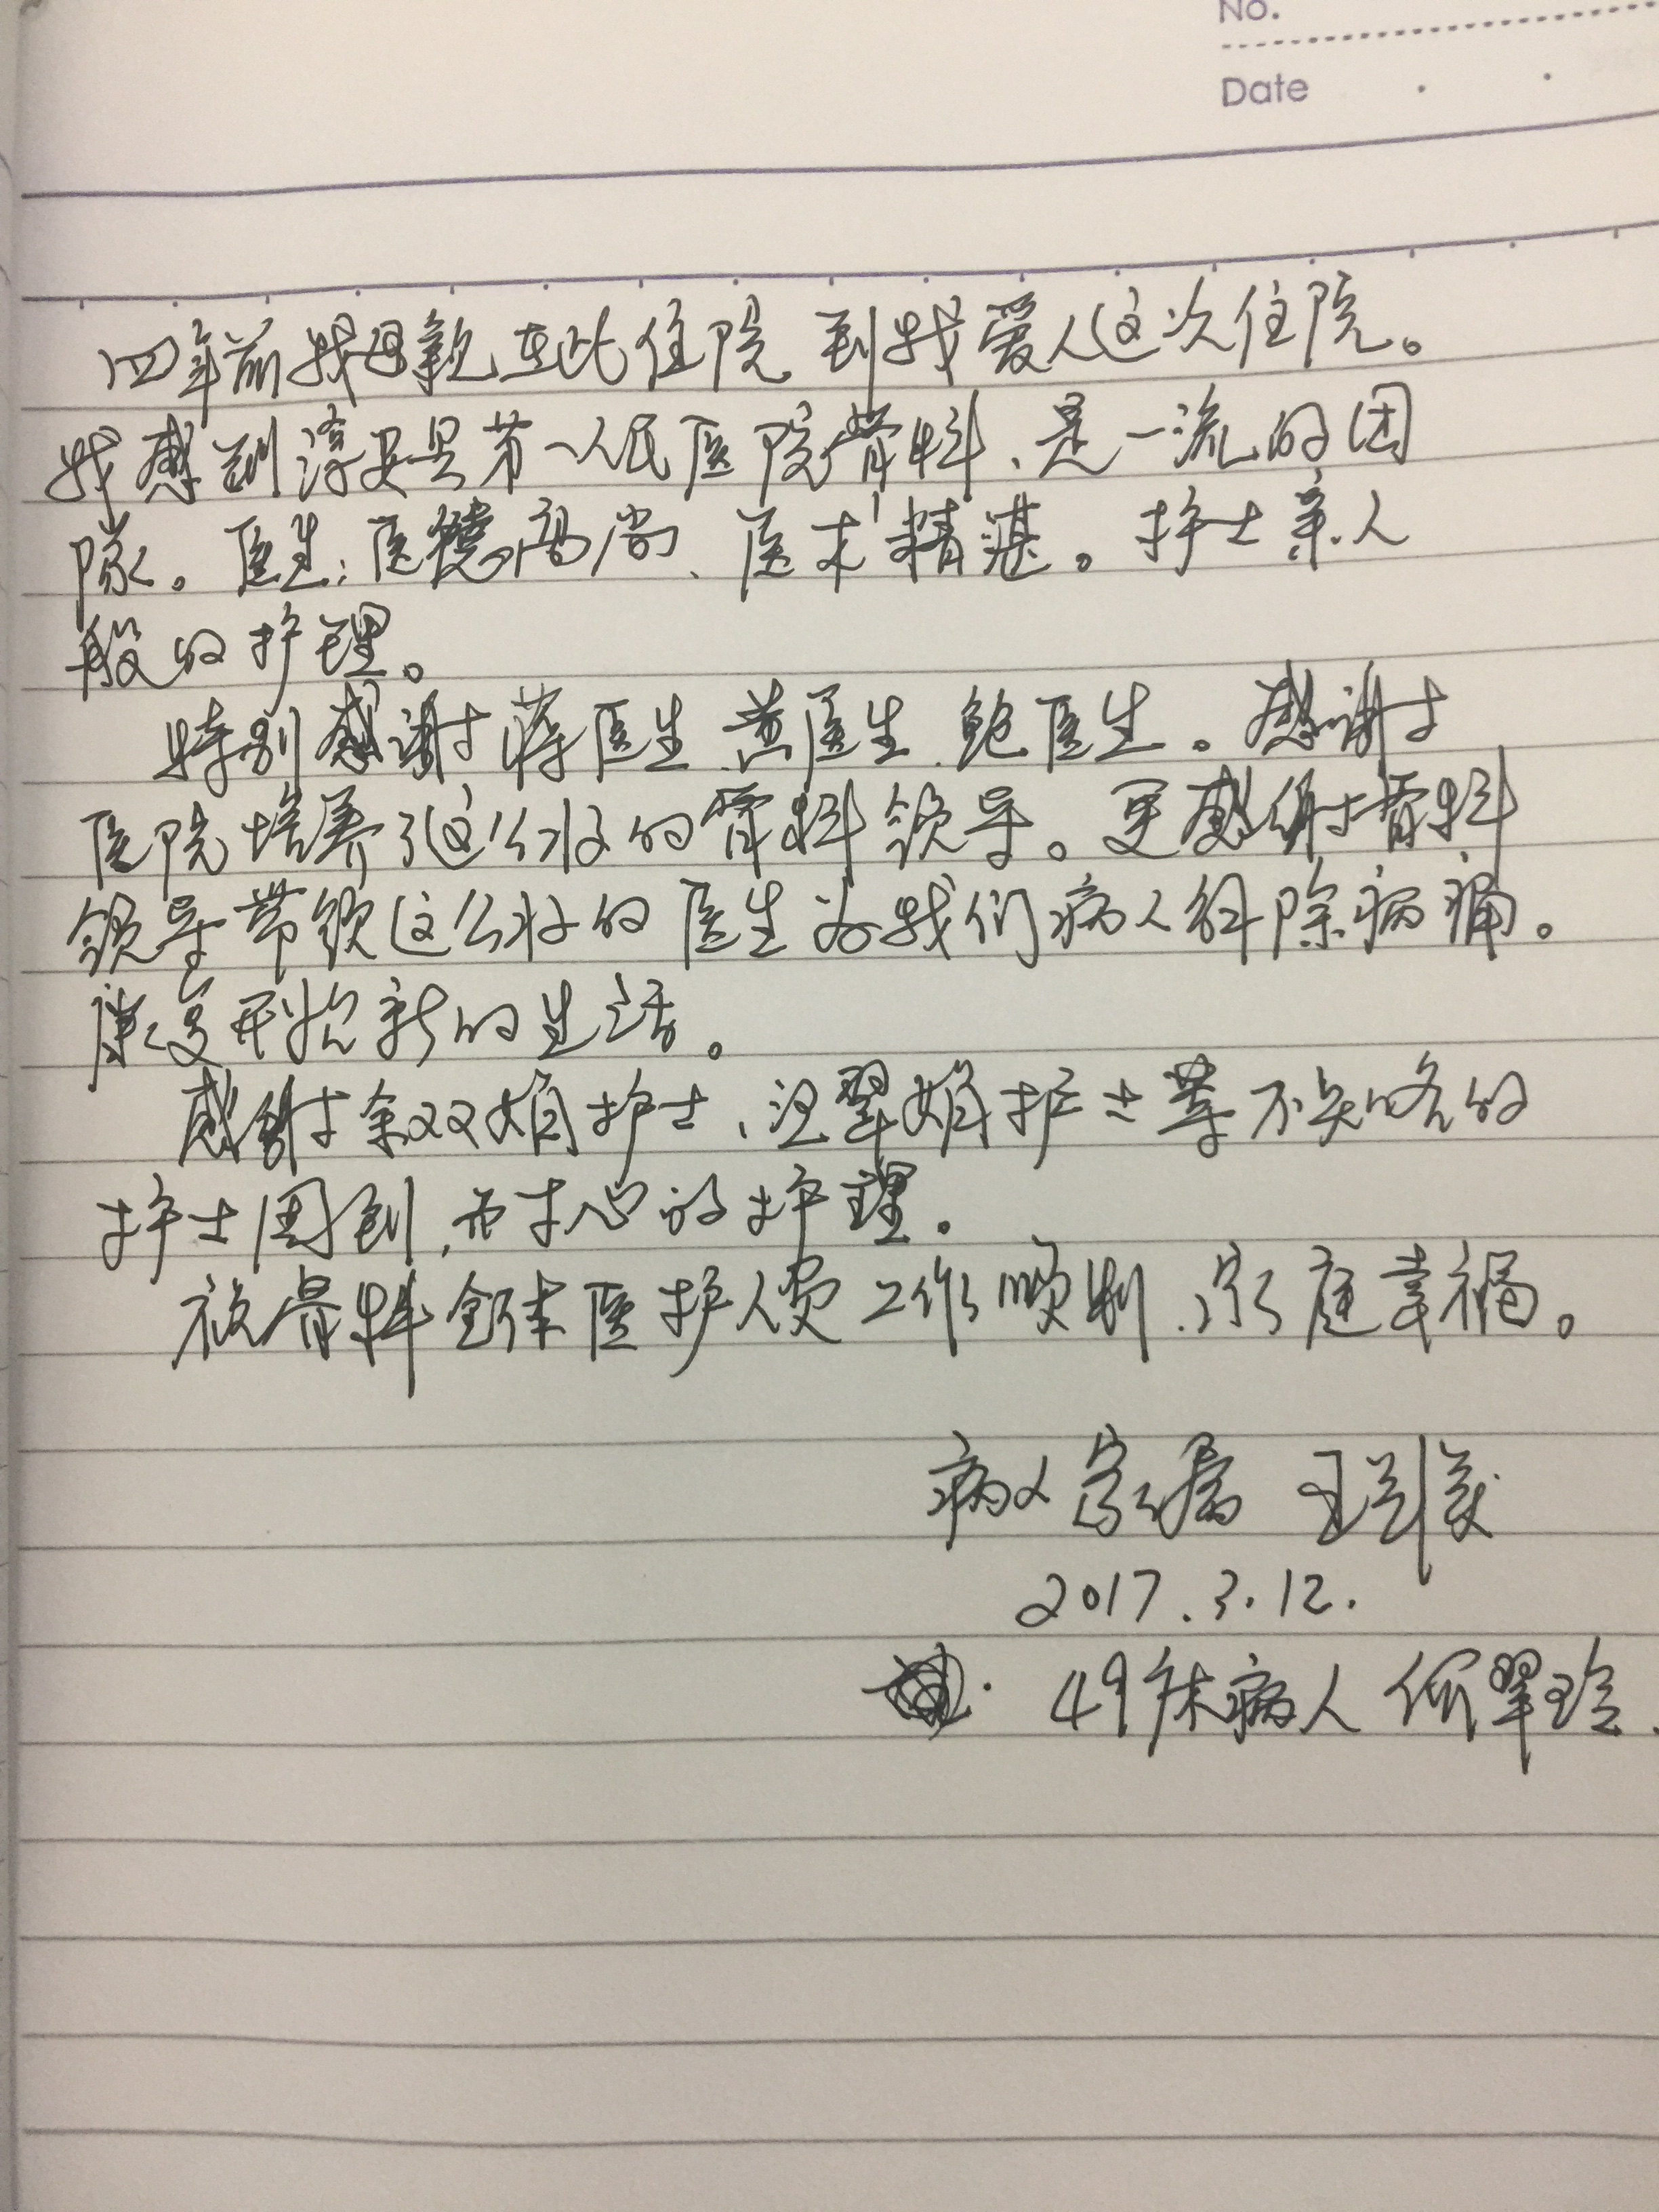 No.
Date
四年前我母亲在此住院到我爱人这次住院。
我感到淳安县第一人民医院骨科、是一流的团
队。医生:医德高尚、医术精湛。护士亲人
般的护理。
特别感谢蒋医生、黄医生、鲍医生。感谢
医院培养了这么好的骨科领导。更感谢骨科
领导带领这么好的医生为我们病人解除病痛。
康复开始新的生活。
感谢余双娟护士、汪翠娟护士等不
护士周到,耐心的护理。
祝骨科全体医护人员工作顺利、家庭幸福。
病人家属 王
2017.3.12.
49床病人 何翠玲